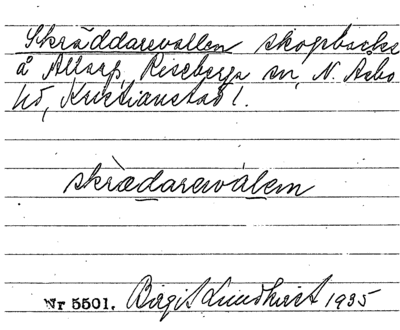 Skräddarevallen skogsbacke
å Allarp, Riseberga sn, N. Asbo
hd, Kristianstad l.
skrædarevàlem
Nr 5501. Birgit Lundkvist 1935